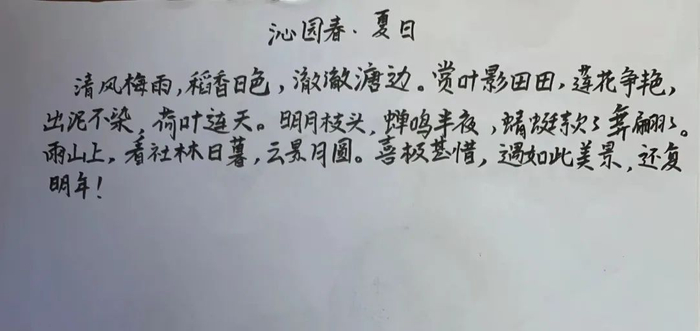 沁园春·夏日
清风梅雨,稻香日色,澈澈溏边。赏叶影田田,莲花争艳,
出泥不染,荷叶连天。明月枝头,蝉鸣半夜,蜻蜓款款舞翩翩。
雨山上,看社林日暮,云景月圆。喜极甚惜,遇如此美景,还复
明年!